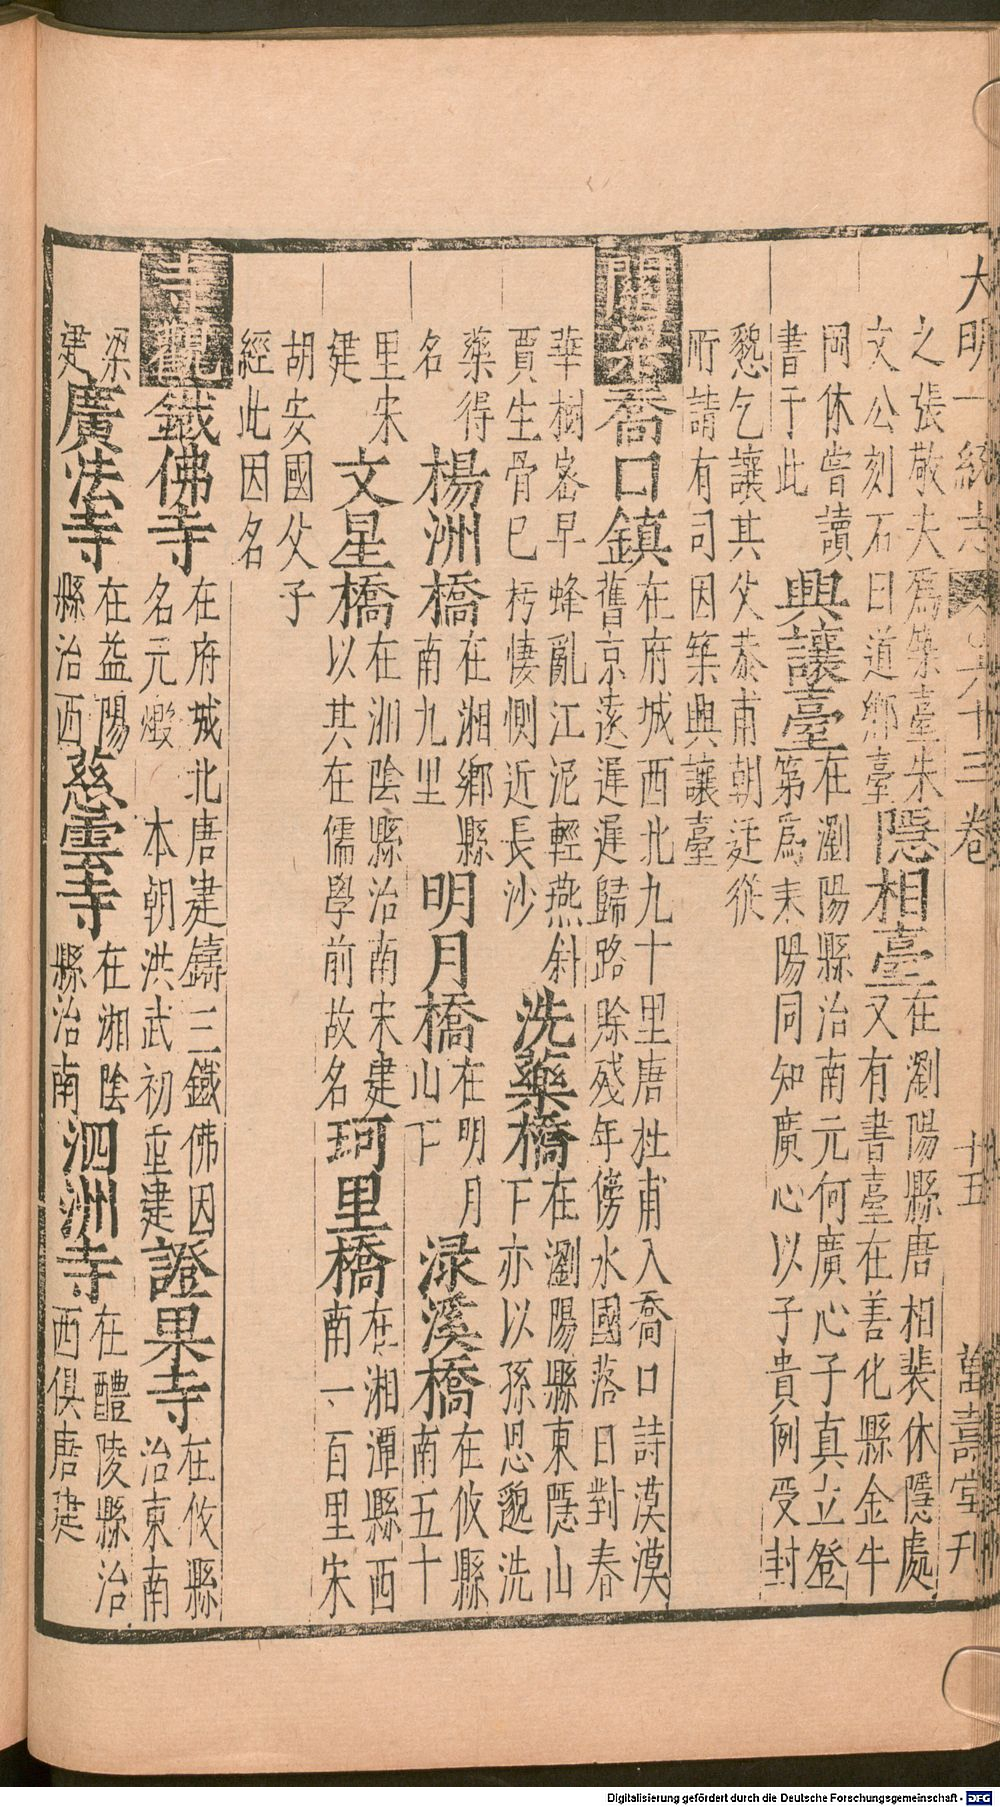 大明一統志 卷六十三 十五 萬壽堂刊
之張敬夫爲築臺朱
文公刻石曰道鄉臺
隱相臺
在瀏陽縣唐相裴休隱處
又有書臺在善化縣金牛
岡休嘗讀
書于此
興讓臺
在瀏陽縣治南元何廣心子真立登
第爲耒陽同知廣心以子貴例受封
懇乞讓其父恭甫朝廷從
所請有司因築興讓臺
關梁
喬口鎮
在府城西北九十里唐杜甫入喬口詩漠漠
舊京遠遲遲歸路賒殘年傍水國落日對春
華樹密早蜂亂江泥輕燕斜
賈生骨已朽悽惻近長沙
洗藥橋
在瀏陽縣東隱山
下亦以孫思邈洗
藥得
名
楊洲橋
在湘鄉縣
南九里
明月橋
在明月
山下
渌溪橋
在攸縣
南五十
里宋
建
文星橋
在湘陰縣治南宋建
以其在儒學前故名
珂里橋
在湘潭縣西
南一百里宋
胡安國父子
經此因名
寺觀
鐵佛寺
在府城北唐建鑄三鐵佛因
名元燬 本朝洪武初重建
證果寺
在攸縣
治東南
梁
建
廣法寺
在益陽
縣治西
慈雲寺
在湘陰
縣治南
泗洲寺
在醴陵縣治
西俱唐建
Digitalisierung gefördert durch die Deutsche Forschungsgemeinschaft - DFG